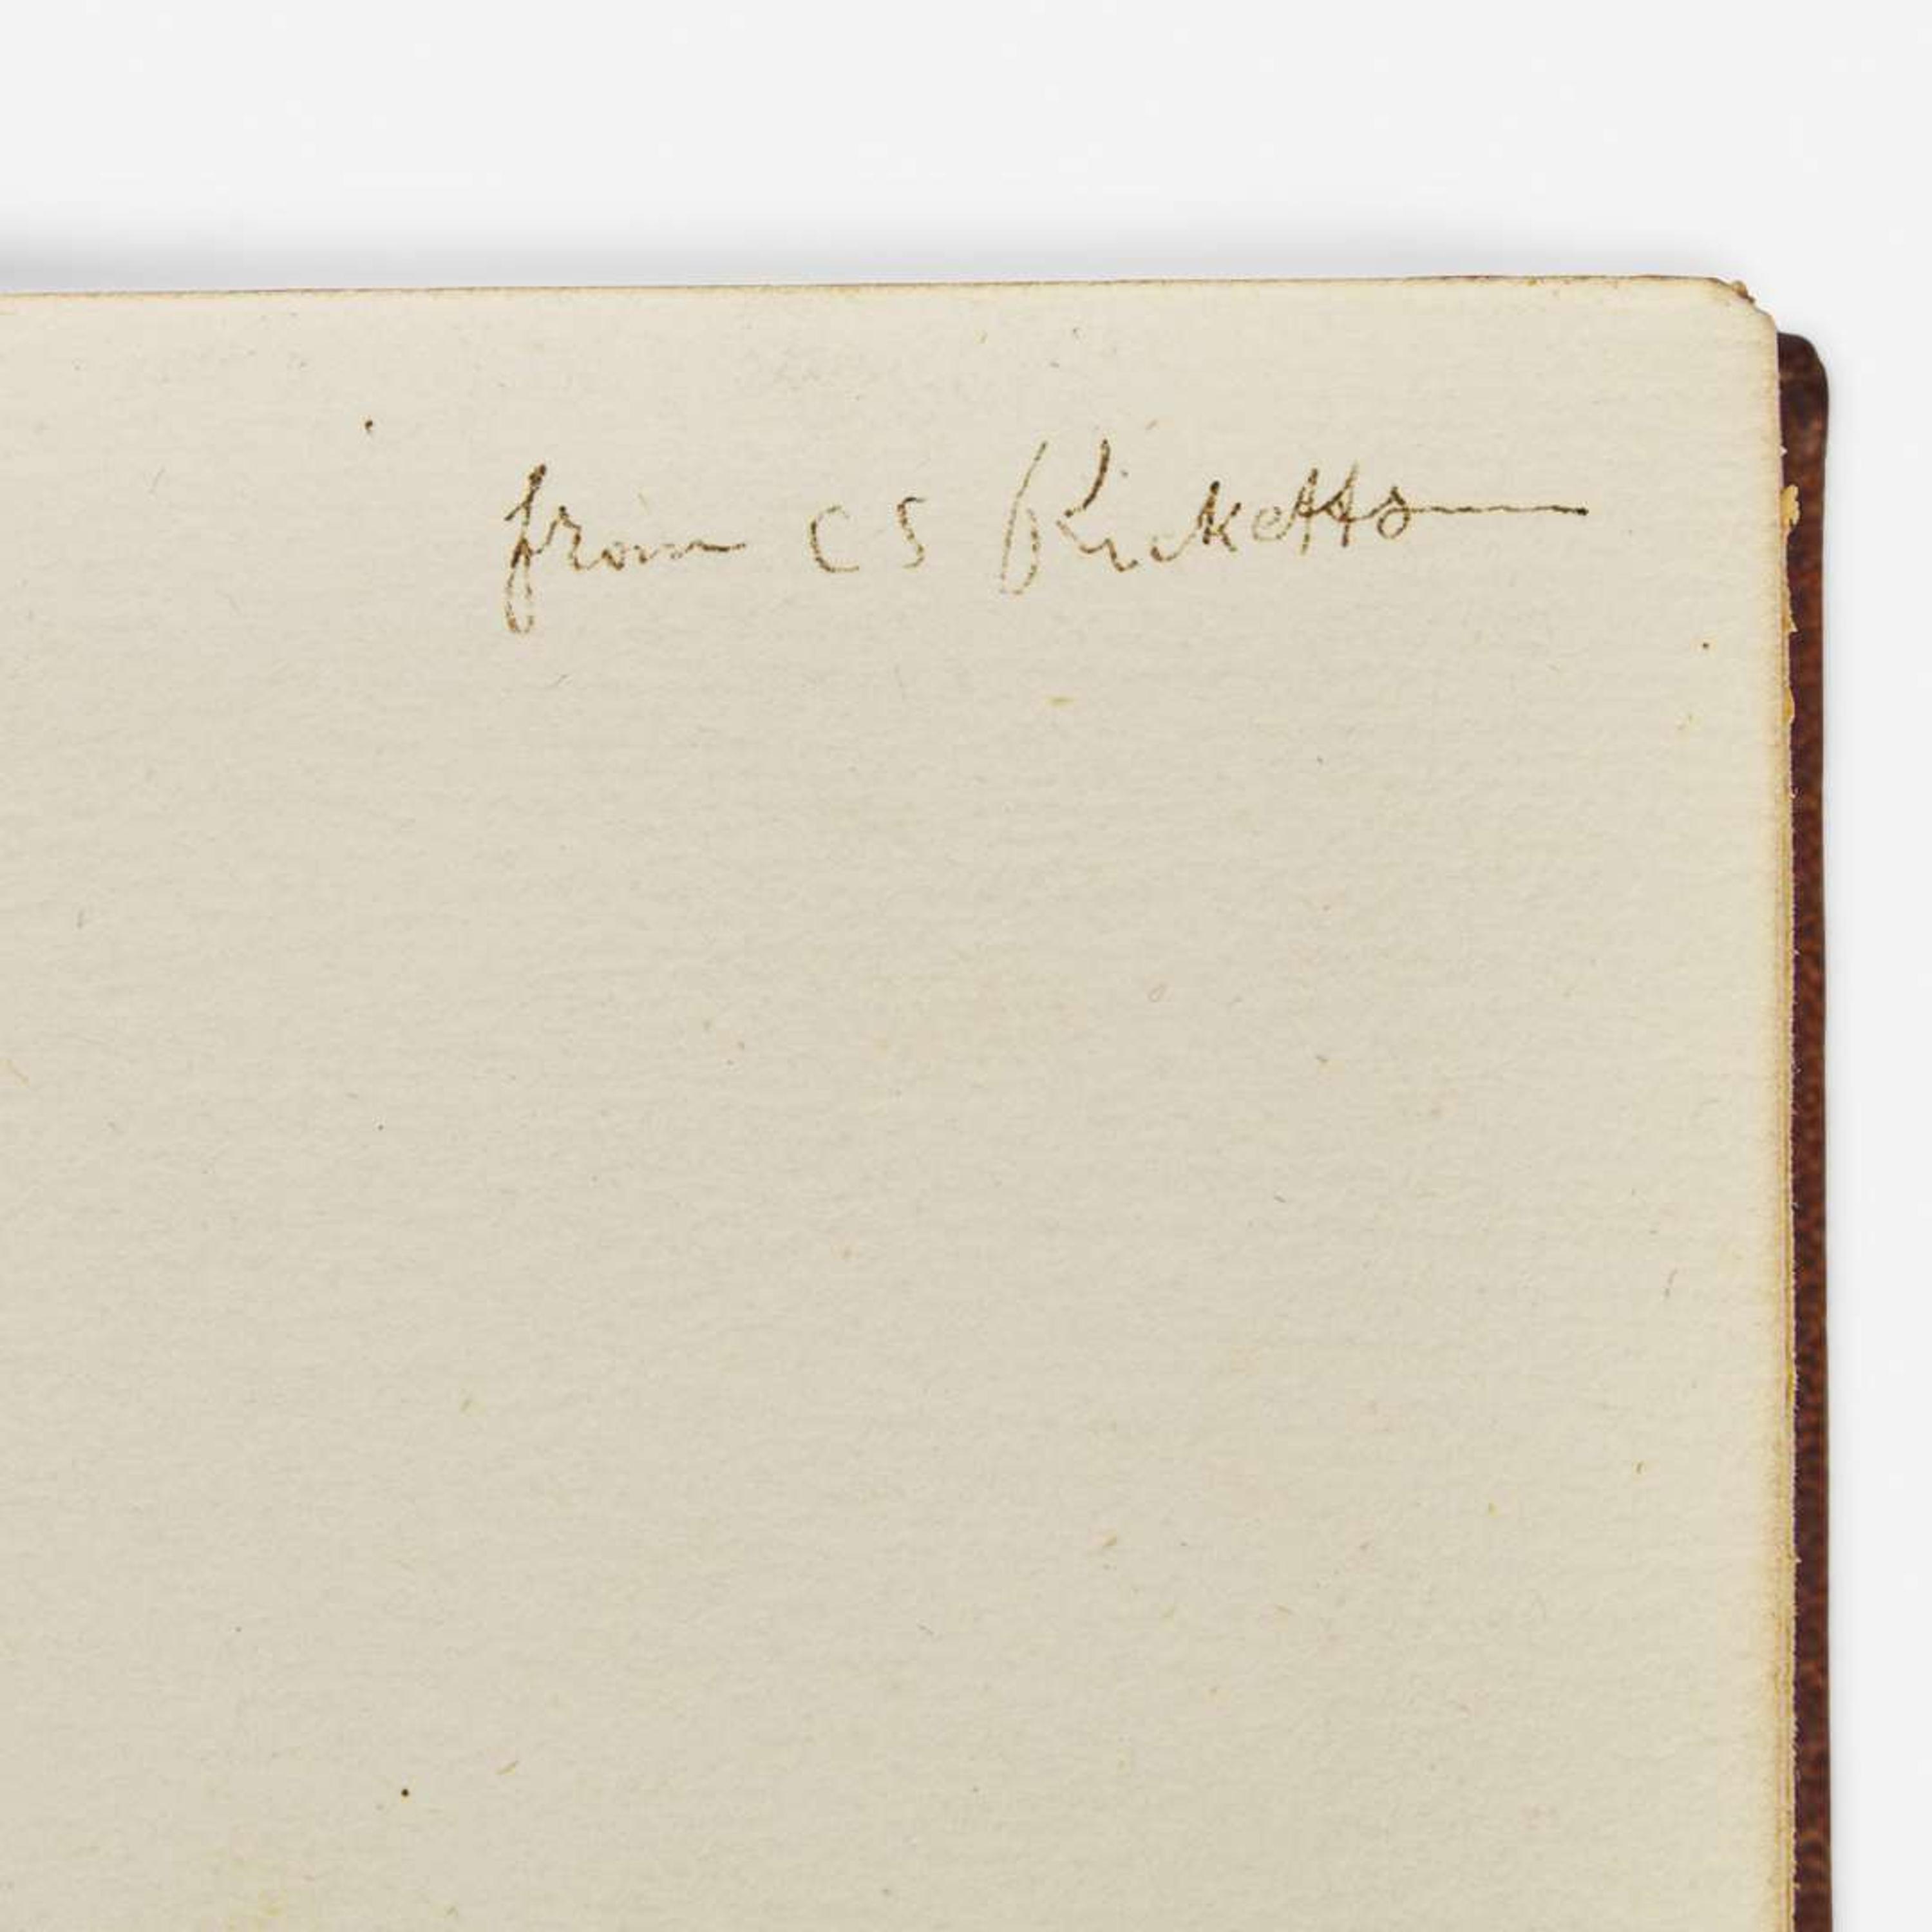 from C S Ricketts